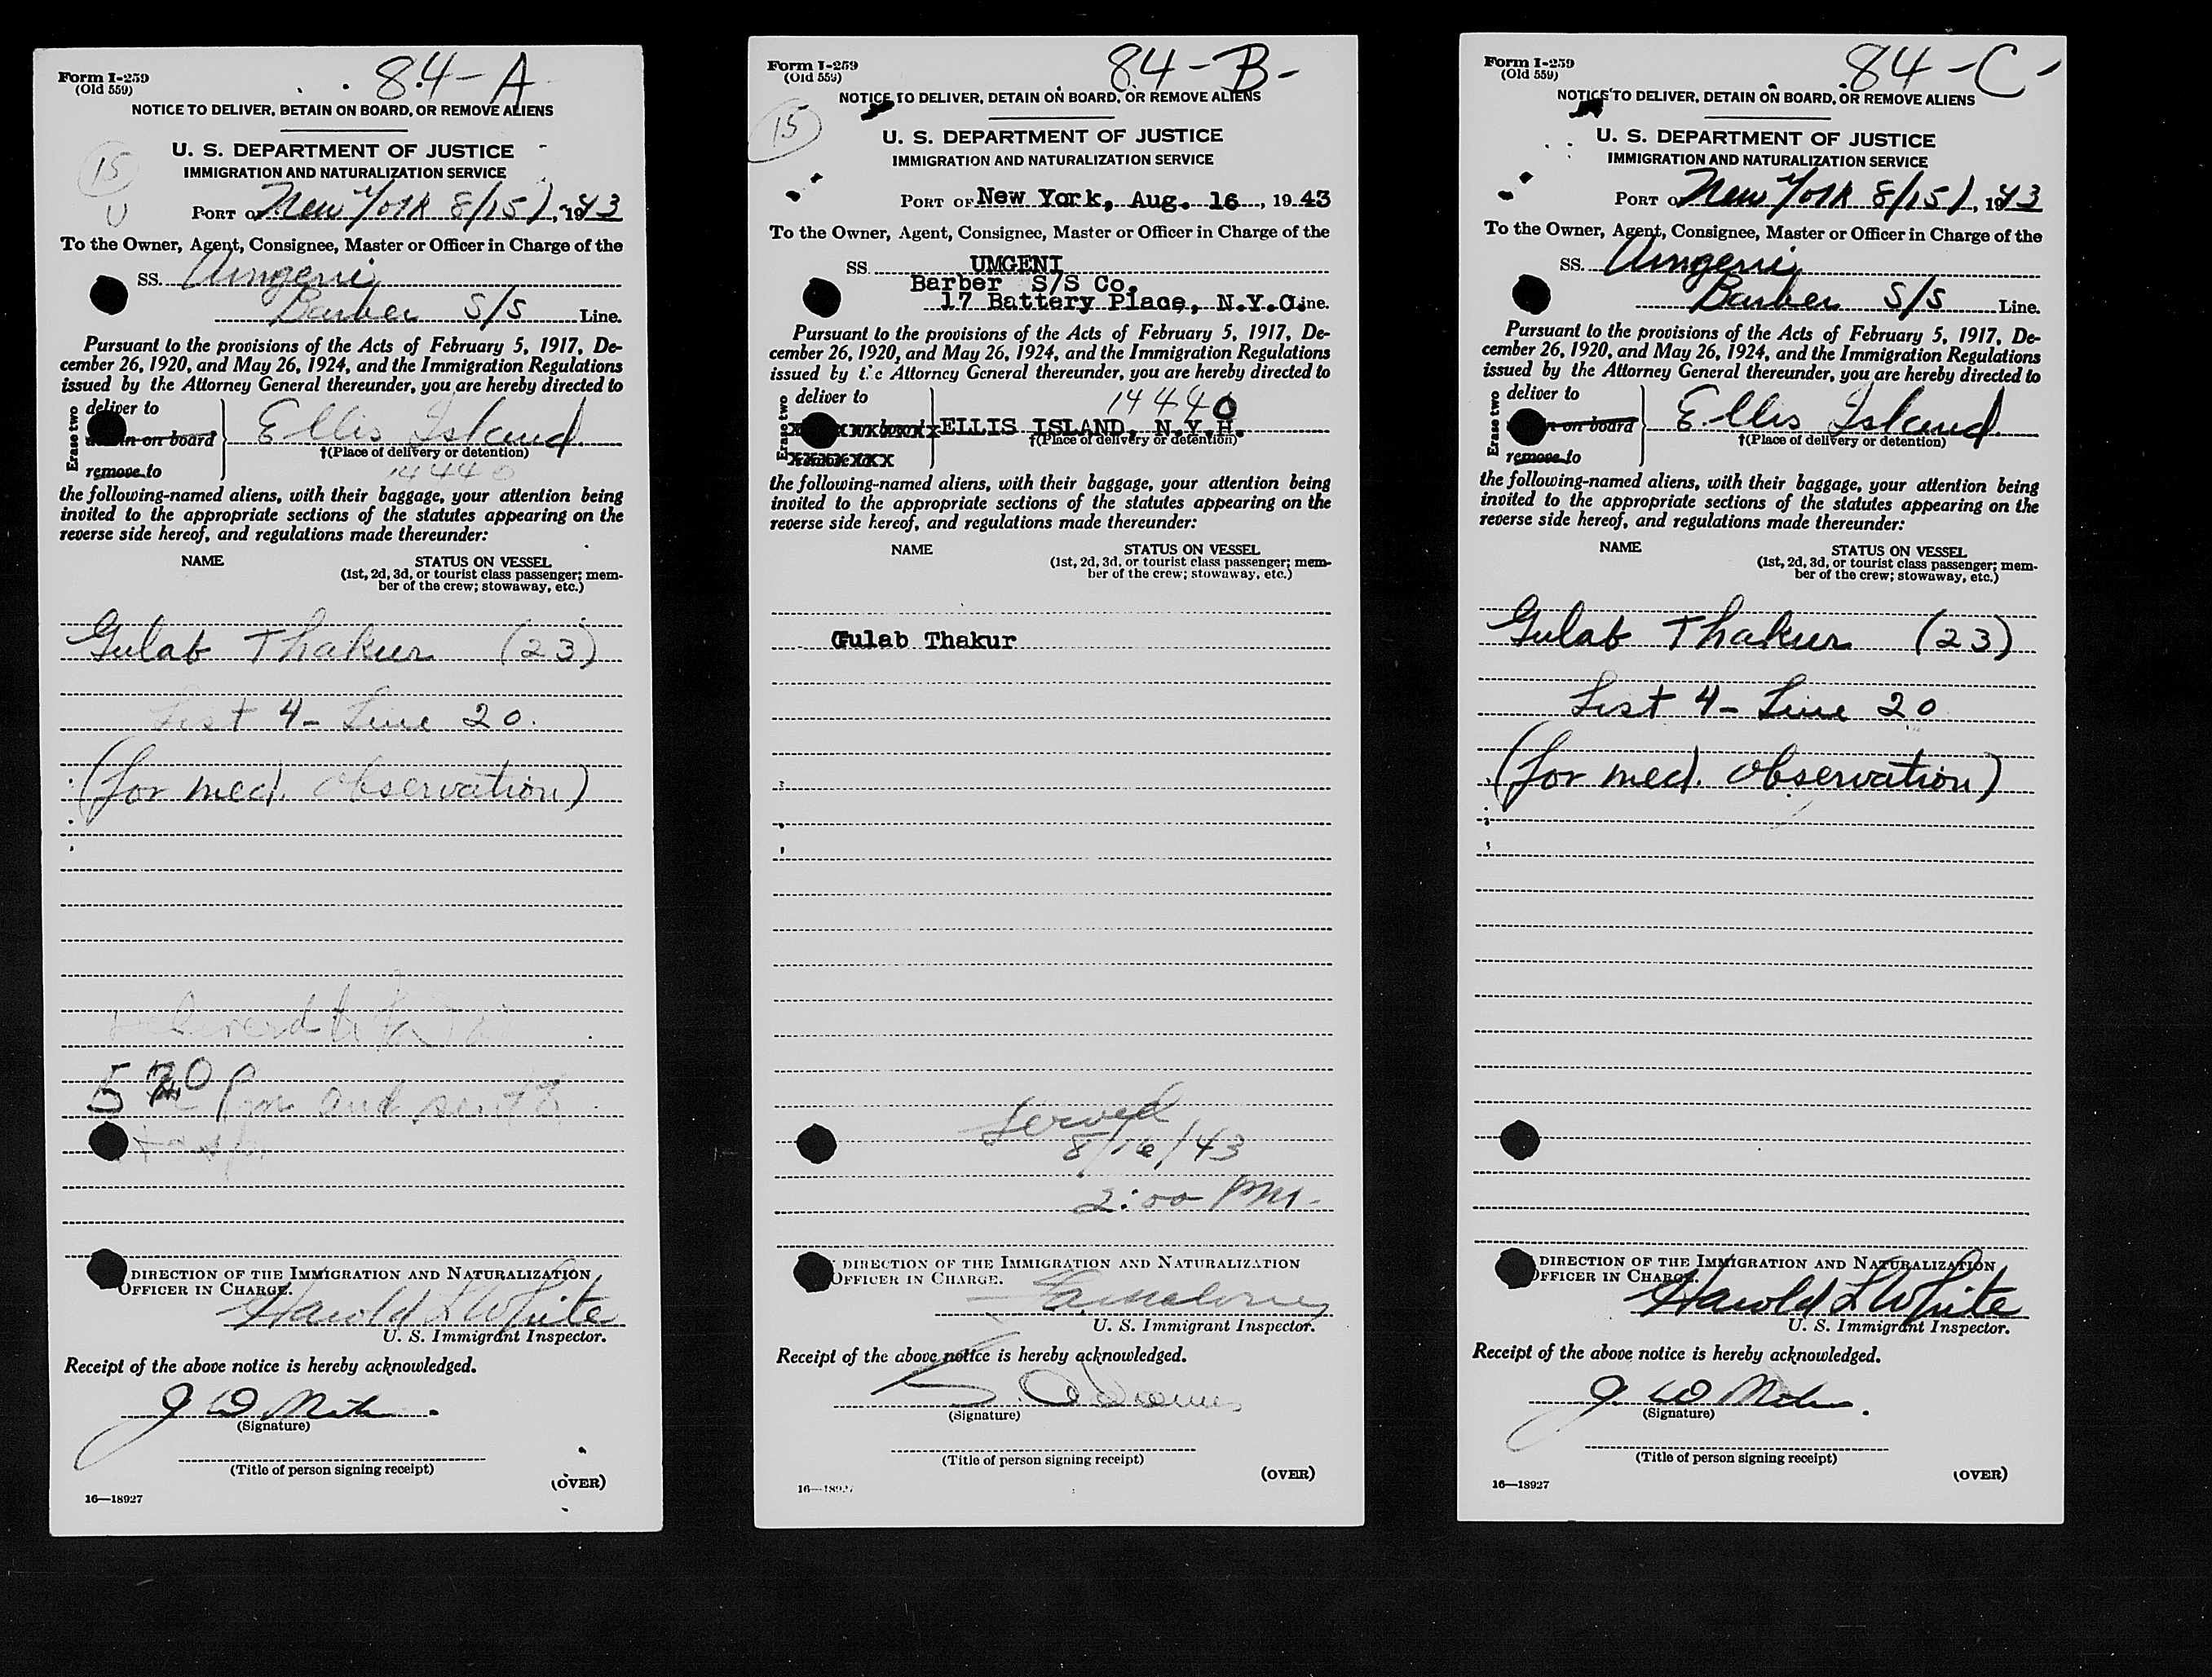 84-A
Form I-259
(Old 559)
NOTICE TO DELIVER, DETAIN ON BOARD, OR REMOVE ALIENS
U. S. DEPARTMENT OF JUSTICE
IMMIGRATION AND NATURALIZATION SERVICE
15
PORT OF New York 8/15/, 1943
To the Owner, Agent, Consignee, Master or Officer in Charge of the
SS. Umgeni
Barber S/S Line.
Pursuant to the provisions of the Acts of February 5, 1917, De-
cember 26, 1920, and May 26, 1924, and the Immigration Regulations
issued by the Attorney General thereunder, you are hereby directed to
Erase two
deliver to
on board
Ellis Island
remove to
†(Place of delivery or detention)
14440
the following-named aliens, with their baggage, your attention being
invited to the appropriate sections of the statutes appearing on the
reverse side hereof, and regulations made thereunder:
NAME STATUS ON VESSEL
(1st, 2d, 3d, or tourist class passenger; mem-
ber of the crew; stowaway, etc.)
Gulab Thakur (23)
List 4 - Line 20.
(for med. observation)
Pm and sent
DIRECTION OF THE IMMIGRATION AND NATURALIZATION
OFFICER IN CHARGE.
Harold L White
U. S. Immigrant Inspector.
Receipt of the above notice is hereby acknowledged.
J W
(Signature)
(Title of person signing receipt)
(OVER)
16—18927
84-B-
Form I-259
(Old 559)
NOTICE TO DELIVER, DETAIN ON BOARD, OR REMOVE ALIENS
15
U. S. DEPARTMENT OF JUSTICE
IMMIGRATION AND NATURALIZATION SERVICE
PORT OF New York, Aug. 16, 1943
To the Owner, Agent, Consignee, Master or Officer in Charge of the
SS. UMGENI
Barber S/S Co.
17 Battery Place, N.Y.C. Line.
Pursuant to the provisions of the Acts of February 5, 1917, De-
cember 26, 1920, and May 26, 1924, and the Immigration Regulations
issued by the Attorney General thereunder, you are hereby directed to
Erase two
deliver to
14440
ELLIS ISLAND, N.Y.H.
†(Place of delivery or detention)
the following-named aliens, with their baggage, your attention being
invited to the appropriate sections of the statutes appearing on the
reverse side hereof, and regulations made thereunder:
NAME STATUS ON VESSEL
(1st, 2d, 3d, or tourist class passenger; mem-
ber of the crew; stowaway, etc.)
Gulab Thakur
Served
8/16/43
2:00 PM-
DIRECTION OF THE IMMIGRATION AND NATURALIZATION
OFFICER IN CHARGE.
U. S. Immigrant Inspector.
Receipt of the above notice is hereby acknowledged.
(Signature)
(Title of person signing receipt)
(OVER)
16—18927
84-C-
Form I-259
(Old 559)
NOTICE TO DELIVER, DETAIN ON BOARD, OR REMOVE ALIENS
U. S. DEPARTMENT OF JUSTICE
IMMIGRATION AND NATURALIZATION SERVICE
PORT OF New York 8/15/, 1943
To the Owner, Agent, Consignee, Master or Officer in Charge of the
SS. Umgeni
Barber S/S Line.
Pursuant to the provisions of the Acts of February 5, 1917, De-
cember 26, 1920, and May 26, 1924, and the Immigration Regulations
issued by the Attorney General thereunder, you are hereby directed to
Erase two
deliver to
on board
Ellis Island
remove to
†(Place of delivery or detention)
the following-named aliens, with their baggage, your attention being
invited to the appropriate sections of the statutes appearing on the
reverse side hereof, and regulations made thereunder:
NAME STATUS ON VESSEL
(1st, 2d, 3d, or tourist class passenger; mem-
ber of the crew; stowaway, etc.)
Gulab Thakur (23)
List 4 - Line 20
(for med. observation)
DIRECTION OF THE IMMIGRATION AND NATURALIZATION
OFFICER IN CHARGE.
Harold L White
U. S. Immigrant Inspector.
Receipt of the above notice is hereby acknowledged.
J. W
(Signature)
(Title of person signing receipt)
(OVER)
16—18927